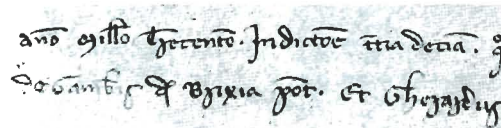 año Millo Trecento. Indictoe tᵗia decia. q
de Gamb̄ꝭ de Brixia pot. Et Gherardus